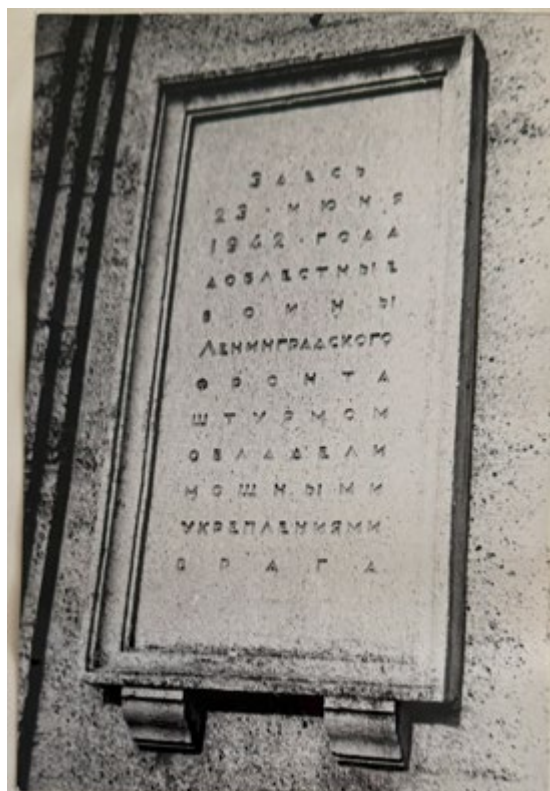 ЗДЕСЬ
23·ИЮНЯ
1942·ГОДА
ДОБЛЕСТНЫЕ
ВОИНЫ
ЛЕНИНГРАДСКОГО
ФРОНТА
ШТУРМОМ
ОВЛАДЕЛИ
МОЩНЫМИ
УКРЕПЛЕНИЯМИ
ВРАГА